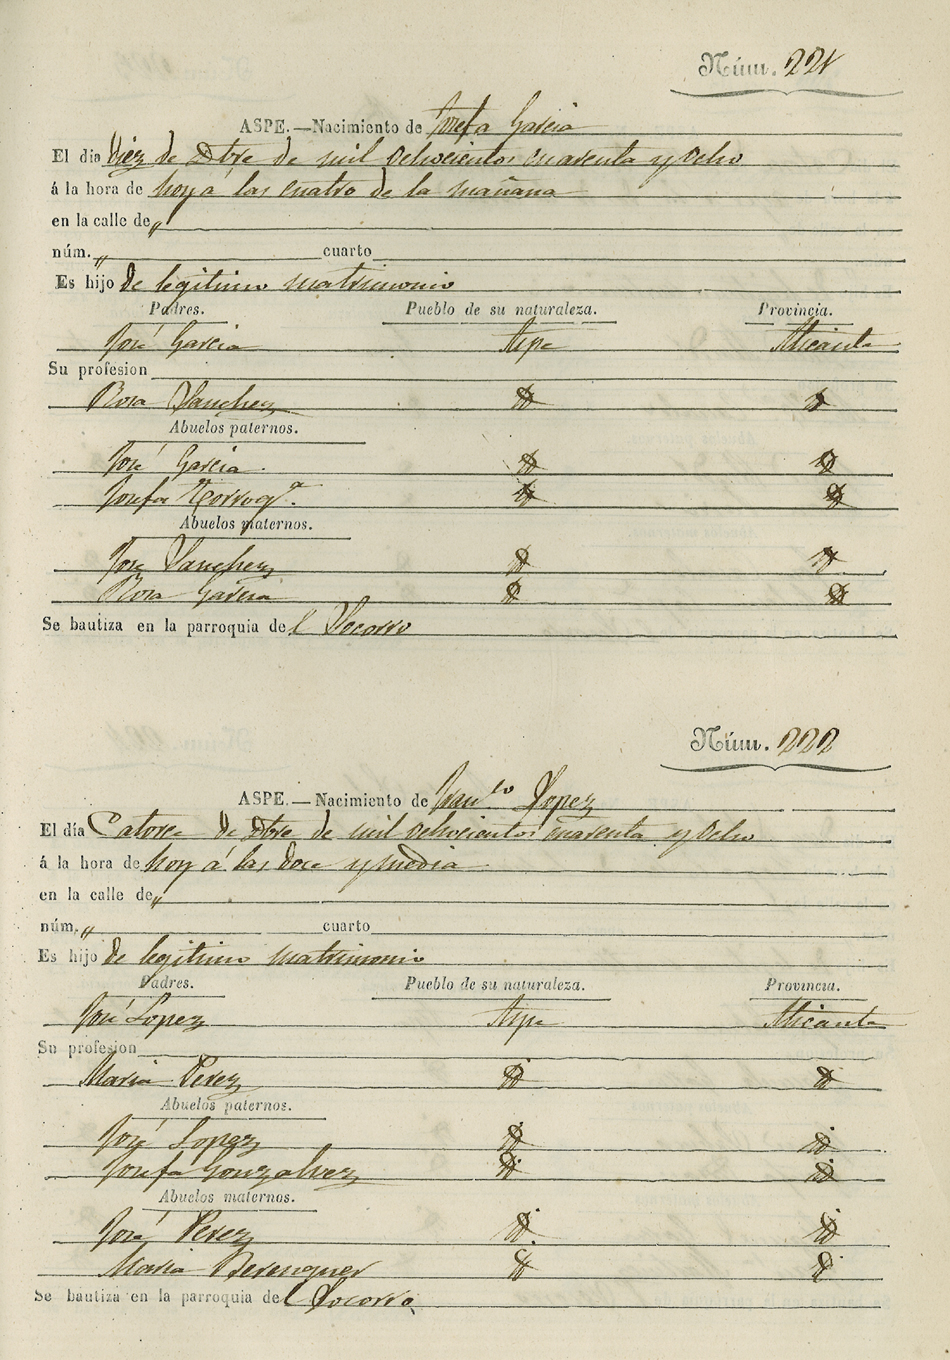 Núm. 221
ASPE.—Nacimiento de Josefa Garcia
El dia Diez de Dbre de mil ochocientos cuarenta y ocho
á la hora de hoy á las cuatro de la mañana
en la calle de "
núm. " cuarto
Es hijo de legitimo matrimonio
Padres. Pueblo de su naturaleza. Provincia.
José Garcia Aspe Alicante
Su profesion
Rosa Sanchez
Abuelos paternos.
José Garcia.
Josefa
Abuelos maternos.
José Sanchez
Rosa Garcia
Se bautiza en la parroquia de l Socorro
Núm. 222
ASPE.—Nacimiento de Franco Lopez
El día Catorce de Dbre de mil ochocientos cuarenta y ocho
á la hora de hoy á las doce y media
en la calle de "
núm. " cuarto
Es hijo de legitimo matrimonio
Padres. Pueblo de su naturaleza. Provincia.
José Lopez Aspe Alicante
Su profesion
Maria Perez
Abuelos paternos.
José Lopez
Josefa Gonzalvez
Abuelos maternos.
José Perez
Maria Berenguer
Se bautiza en la parroquia de l Socorro